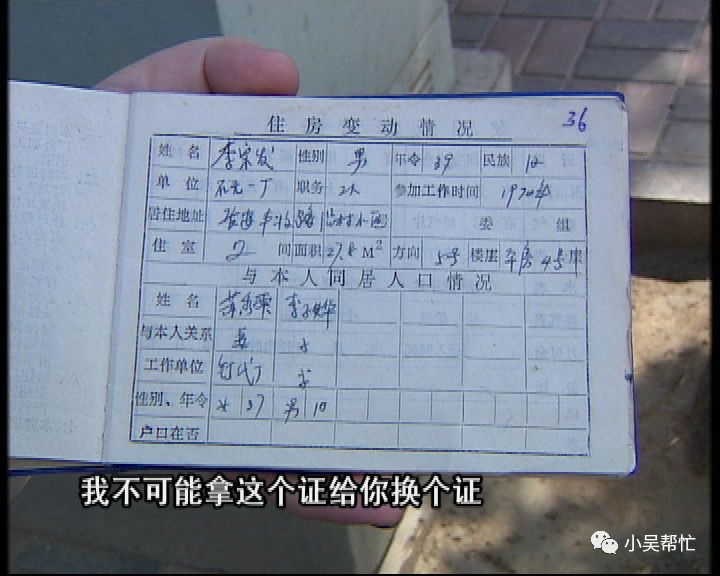 36
住房变动情况
姓名 李宗发 性别 男 年令 39 民族 汉
单位 职务 工人 参加工作时间 1970年
居住地址 委 组
住室 2 间面积 27.8 M² 方向 5号 楼层 平房4号库
与本人同居人口情况
姓名
与本人关系 妻 子
工作单位
性别、年令 女 37 男 10
户口在否
我不可能拿这个证给你换个证
小吴帮忙